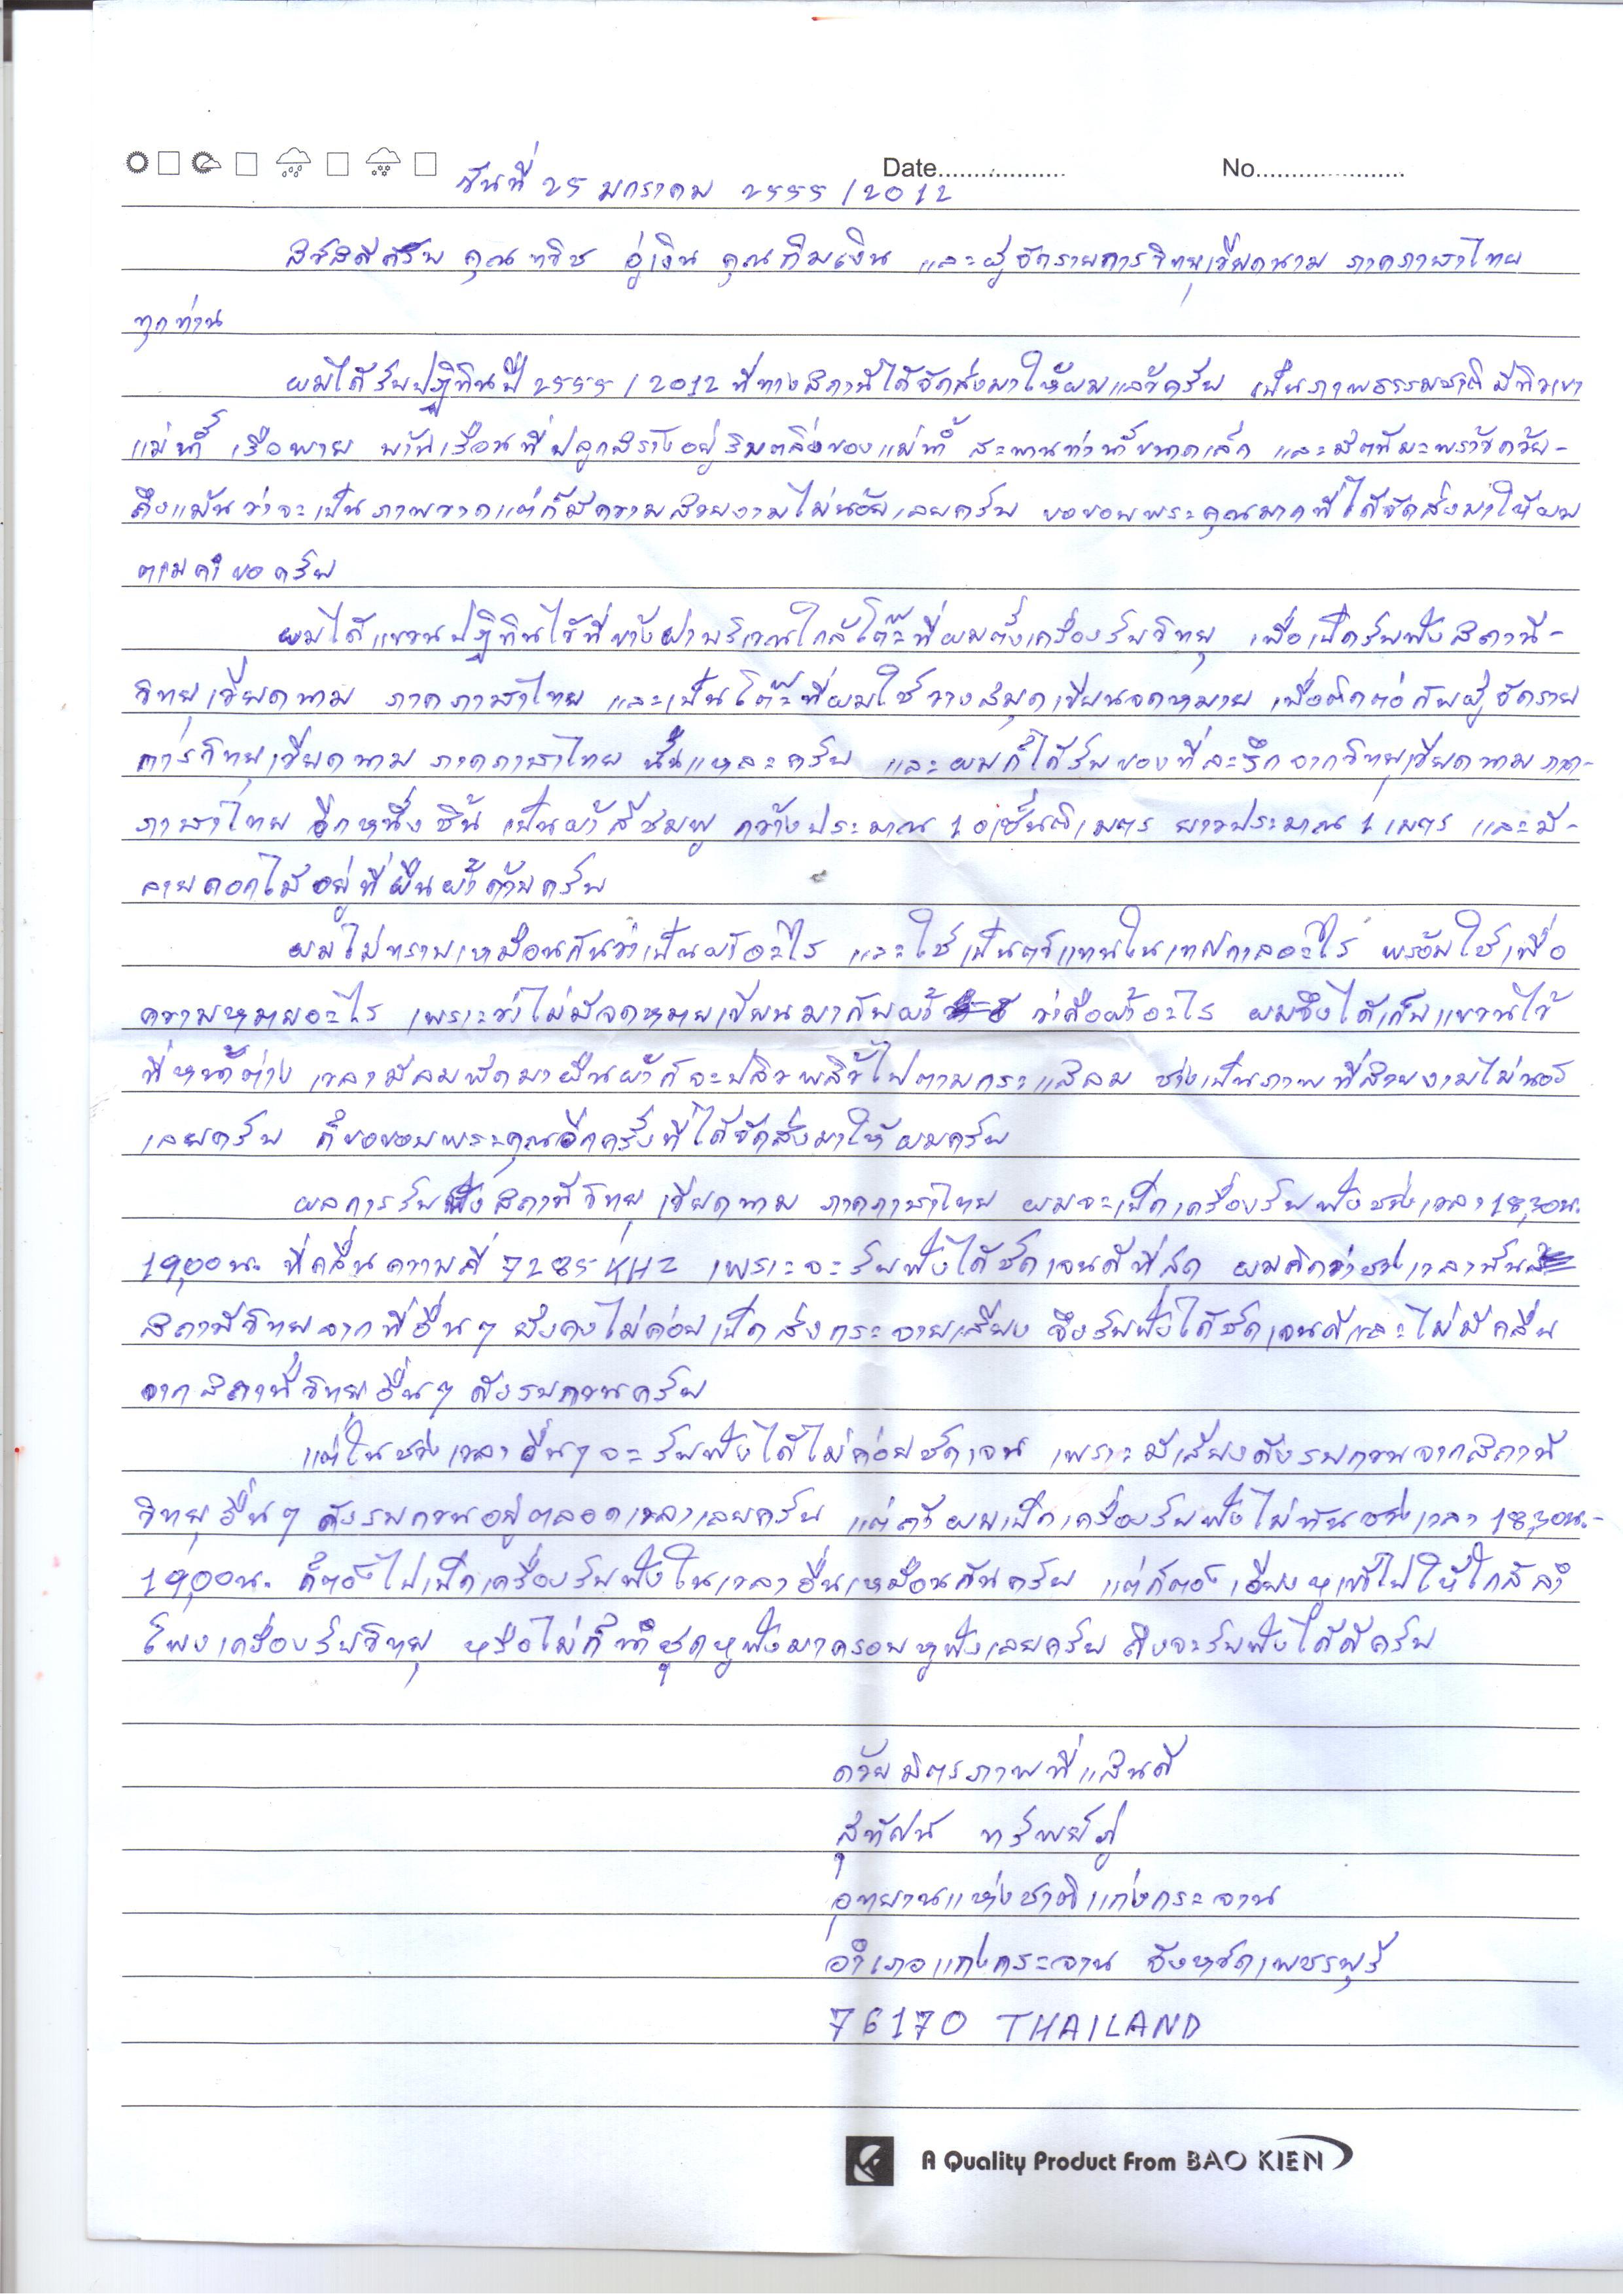 Date.................. No.....................
วันที่ 25 มกราคม 2555 / 2012
สวัสดีครับ คุณ ทวิช อู่เงิน คุณกิมเงิน และผู้จัดรายการวิทยุเวียดนาม ภาคภาษาไทย
ทุกท่าน
ผมได้รับปฏิทินปี 2555 / 2012 ที่ทางสถานีได้จัดส่งมาให้ผมแล้วครับ เป็นภาพธรรมชาติ มีทิวเขา
แม่น้ำ เรือพาย บ้านเรือนที่ปลูกสร้างอยู่ริมตลิ่งของแม่น้ำ สะพานท่าน้ำขนาดเล็ก และมีต้นมะพร้าวด้วย-
ถึงแม้นว่าจะเป็นภาพวาดแต่ก็มีความสวยงามไม่น้อยเลยครับ ขอขอบพระคุณมากที่ได้จัดส่งมาให้ผม
ตามคำขอครับ
ผมได้แขวนปฏิทินไว้ที่ข้างฝาบริเวณใกล้โต๊ะที่ผมตั้งเครื่องรับวิทยุ เพื่อเปิดรับฟังสถานี-
วิทยุเวียดนาม ภาคภาษาไทย และเป็นโต๊ะที่ผมใช้วางสมุดเขียนจดหมาย เพื่อติดต่อกับผู้จัดราย
การวิทยุเวียดนาม ภาคภาษาไทย นั้นแหละครับ และผมก็ได้รับของที่ละรึกจากวิทยุเวียดนาม ภาค-
ภาษาไทย อีกหนึ่งชิ้น เป็นผ้าสีชมพู กว้างประมาณ 10 เซ็นติเมตร ยาวประมาณ 1 เมตร และมี-
ลายดอกไม้อยู่ที่ผืนผ้าด้วยครับ
ผมไม่ทราบเหมือนกันว่าเป็นผ้าอะไร และใช้เป็นตัวแทนในเทศกาลอะไร พร้อมใช้เพื่อ
ความหมายอะไร เพราะว่าไม่มีจดหมายเขียนมากับผ้า ว่าคือผ้าอะไร ผมจึงได้เก็บแขวนไว้
ที่หน้าต่าง เวลามีลมพัดมาผืนผ้าก็จะปลิวพลิ้วไปตามกระแสลม ช่างเป็นภาพที่สวยงามไม่น้อย
เลยครับ ก็ขอขอบพระคุณอีกครั้งที่ได้จัดส่งมาให้ผมครับ
ผลการรับฟังสถานีวิทยุเวียดนาม ภาคภาษาไทย ผมจะเปิดเครื่องรับฟังช่วงเวลา 18,30น.
19,00น. ที่คลื่นความถี่ 7285 KHz เพราะจะรับฟังได้ชัดเจนดีที่สุด ผมคิดว่าช่วงเวลานั้น
สถานีวิทยุจากที่อื่นๆ ยังคงไม่ค่อยเปิดส่งกระจายเสียง จึงรับฟังได้ชัดเจนดีและไม่มีคลื่น
จากสถานีวิทยุอื่นๆ ดังรบกวนครับ
แต่ในช่วงเวลาอื่นๆ จะรับฟังได้ไม่ค่อยชัดเจน เพราะมีเสียงดังรบกวนจากสถานี
วิทยุอื่นๆ ดังรบกวนอยู่ตลอดเวลาเลยครับ แต่ถ้าผมเปิดเครื่องรับฟังไม่ทันช่วงเวลา 18,30น.-
19,00น. ก็ต้องไปเปิดเครื่องรับฟังในเวลาอื่นเหมือนกันครับ แต่ก็ต้องเอียงหูเข้าไปให้ใกล้ลำ
โพงเครื่องรับวิทยุ หรือไม่ก็นำชุดหูฟังมาครอบหูฟังเลยครับ ถึงจะรับฟังได้ดีครับ
ด้วยมิตรภาพที่แสนดี
สุทัศน์ ทรัพย์ภู่
อุทยานแห่งชาติแก่งกระจาน
อำเภอแก่งกระจาน จังหวัดเพชรบุรี
76170 THAILAND
A Quality Product From BAO KIEN